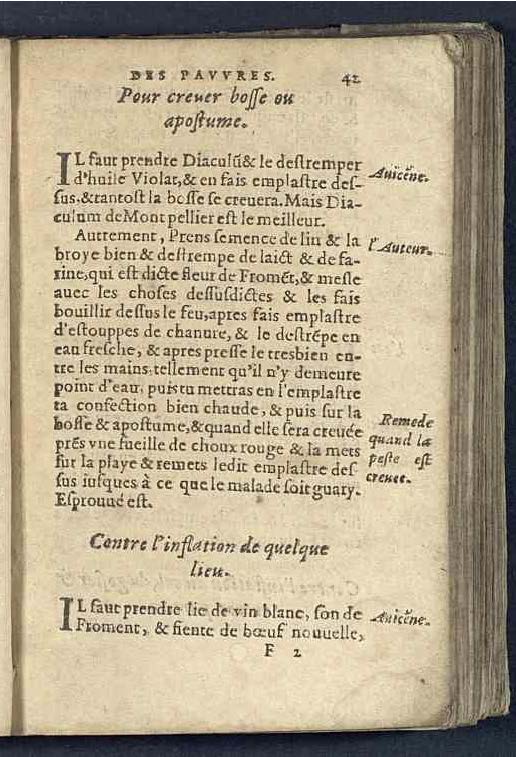 DES PAVVRES. 42
Pour creuer bosse ou
apostume.
IL faut prendre Diaculũ & le destremper
d'huile Violat, & en fais emplastre des-
sus. & tantost la bosse se creuera. Mais Dia-
culum de Montpellier est le meilleur.
Auicẽne.
Autrement, Prens semence de lin & la
broye bien & destrempe de laict & de fa-
rine, qui est dicte fleur de Fromẽt, & mesle
auec les choses dessusdictes & les fais
bouillir dessus le feu, apres fais emplastre
d'estouppes de chanure, & le destrẽpe en
eau fresche, & apres presse le tresbien en-
tre les mains, tellement qu'il n'y demeure
point d'eau, puis tu mettras en l'emplastre
ta confection bien chaude, & puis sur la
bosse & apostume, & quand elle sera creuée
prés vne fueille de choux rouge & la mets
sur la playe & remets ledit emplastre des
sus iusques à ce que le malade soit guary.
Esprouué est.
l'Auteur.
Remede
quand la
peste est
creuee.
Contre l'inflation de quelque
lieu.
IL faut prendre lie de vin blanc, son de
Froment, & fiente de bœuf nouuelle,
Auicẽne.
F 2